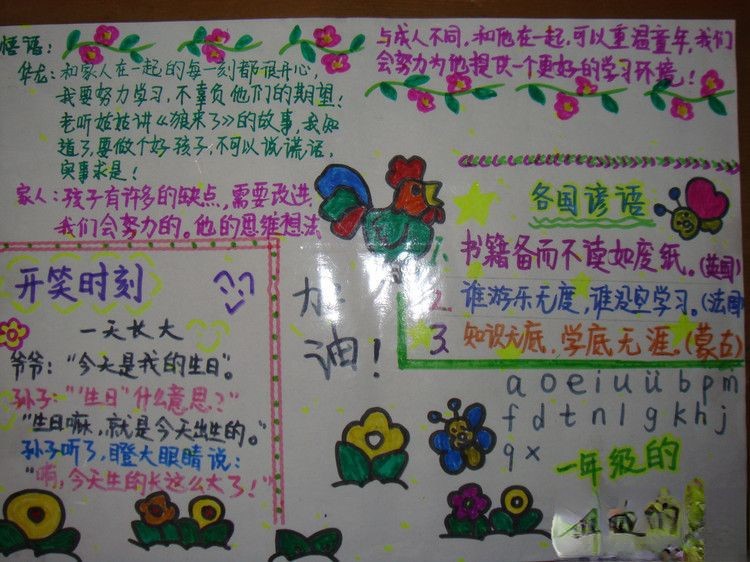 悟语：
华龙：和家人在一起的每一刻都很开心，
我要努力学习，不辜负他们的期望！
老听姑姑讲《狼来了》的故事，我知
道了要做个好孩子，不可以说谎话，
实事求是！
家人：孩子有许多的缺点，需要改进
我们会努力的。他的思维想法
与成人不同，和他在一起，可以重温童年，我们
会努力为他提供一个更好的学习环境！
开笑时刻
一天长大
爷爷："今天是我的生日"。
孙子："'生日'什么意思？"
"生日嘛，就是今天出生的。"
孙子听了，瞪大眼睛说：
"啊，今天生的长这么大了！"
加
油！
各国谚语
1. 书籍备而不读如废纸。(英国)
2. 谁游乐无度，谁没空学习。(法国)
3. 知识无底，学底无涯。(蒙古)
a o e i u ü b p m
f d t n l g k h j
q x
一年级的